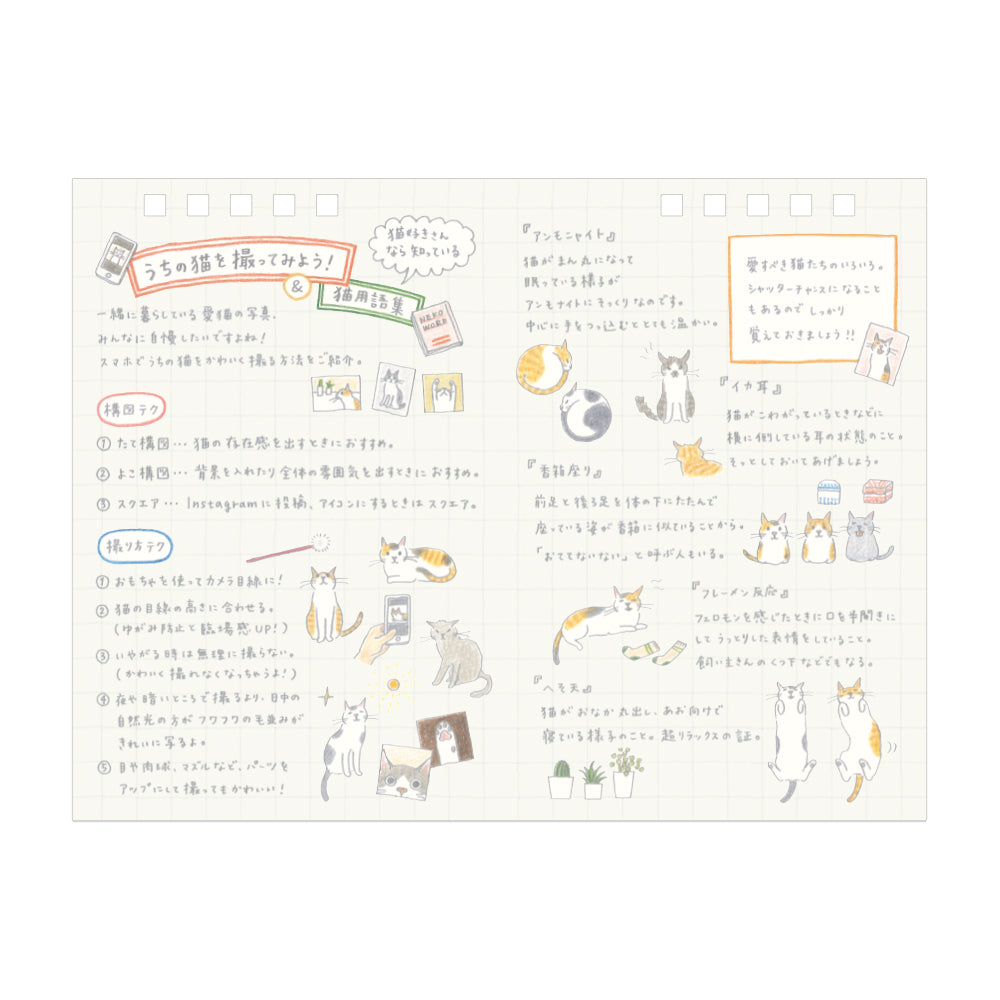 うちの猫を撮ってみよう!
&
猫用語集
猫好きさん
なら知っている
NEKO
WORD
一緒に暮らしている愛猫の写真、
みんなに自慢したいですよね!
スマホでうちの猫をかわいく撮る方法をご紹介。
構図テク
① たて構図… 猫の存在感を出すときにおすすめ。
② よこ構図… 背景を入れたり全体の雰囲気を出すときにおすすめ。
③ スクエア… Instagramに投稿、アイコンにするときはスクエア。
撮り方テク
① おもちゃを使ってカメラ目線に!
② 猫の目線の高さに合わせる。
(ゆがみ防止と臨場感UP!)
③ いやがる時は無理に撮らない。
(かわいく撮れなくなっちゃうよ!)
④ 夜や暗いところで撮るより、日中の
自然光の方がフワフワの毛並みが
きれいに写るよ。
⑤ 目や肉球、マズルなど、パーツを
アップにして撮ってもかわいい!
『アンモニャイト』
猫がまん丸になって
眠っている様子が
アンモナイトにそっくりなのです。
中心に手をつっ込むととても温かい。
愛すべき猫たちのいろいろ。
シャッターチャンスになること
もあるので しっかり
覚えておきましょう!!
『イカ耳』
猫がこわがっているときなどに
横に倒している耳の状態のこと。
そっとしておいてあげましょう。
『香箱座り』
前足と後ろ足を体の下にたたんで
座っている姿が香箱に似ていることから。
「おててないない」と呼ぶ人もいる。
『フレーメン反応』
フェロモンを感じたときに口を半開きに
して うっとりした表情をしていること。
飼い主さんの くつ下などでもなる。
『へそ天』
猫がおなか丸出し、あお向けで
寝ている様子のこと。超リラックスの証。